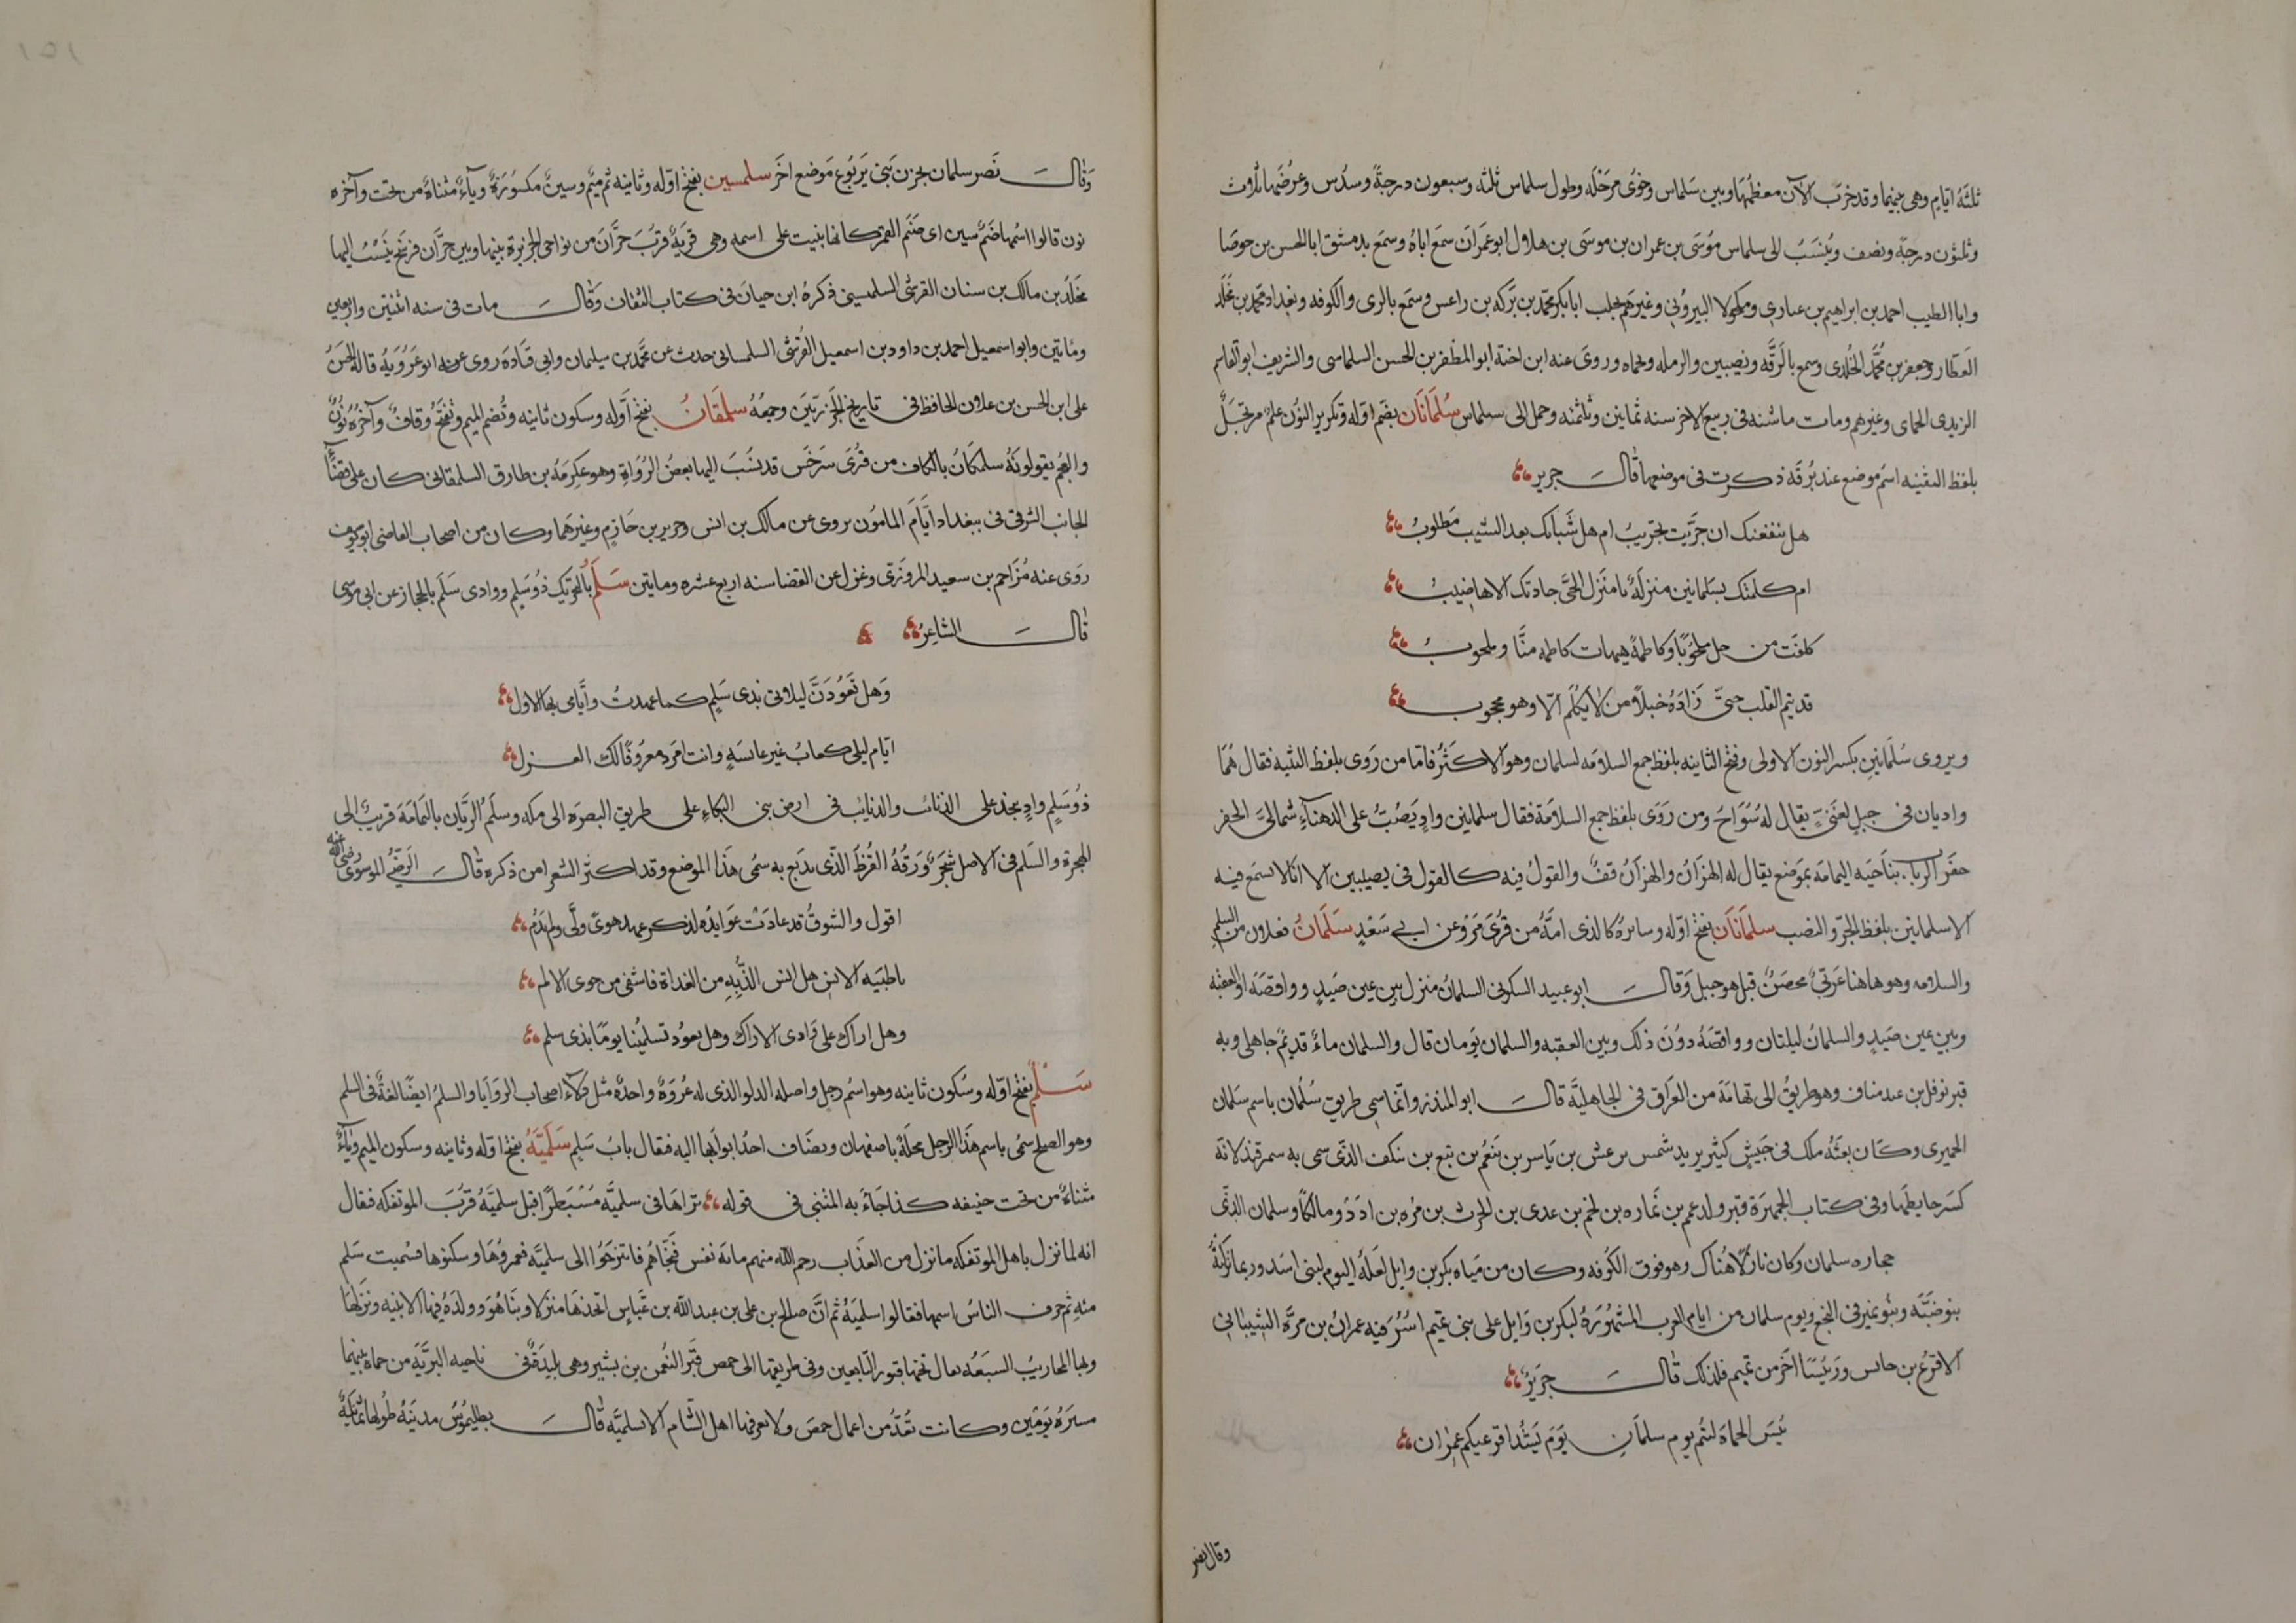 ثلثة ايام وهي بينهما وقد خرب الآن معظمها وبين سلماس وخوى مرحلة وطول سلماس ثلثه وسبعون درجة وسدس وعرضها ثمان وثلثون
وثلثون درجة ونصف وينسب الى سلماس موسى بن عمران بن موسى بن هلال ابو عمران سمع اباه وسمع بدمشق ابا الحسن بن حوصا
وابا الطيب احمد بن ابراهيم بن عبادى ومكحولا البيروتي وغيرهم بحلب ابا بكر محمد بن بركه بن راعس وسمع بالرى والكوفه وبغداد محمد بن مخلد
العطار وجعفر بن محمد الخلدى وسمع بالرقه ونصيبين والرمله وحماه وروى عنه ابن اخته ابو المظفر بن الحسن السلماسى والشريف ابو القاسم
الزيدى الحماى وغيرهم ومات ماشنه فى ربيع الاخر سنه ثمانين وثلثمئه وحمل الى سلماس سلمانان بضم اوله وتكرير النون علم مرتجل
بلفظ التثنيه اسم موضع عند برقه ذكرت فى موضعها قال جرير
هل ينفعنك ان جربت تجريب ام هل شبابك بعد الشيب مطلوب
ام كلمتك بسلمانين منزلة يا منزل الحى جادتك الاهاضيب
كلفت من حل ملحوبا وكاظمة هيهات كاظمه منا وملحوب
قد تيم القلب حتى زاده خبلا من لا يكلم الا وهو محجوب
ويروى سلمانين بكسر النون الاولى وفتح الثانيه بلفظ جمع السلامه لسلمان وهو الاكثر فاما من روى بلفظ التثنيه فقال هما
واديان فى جبل لغنى يقال له سواج ومن روى بلفظ جمع السلامة فقال سلمانين واد يصب على الدهناء شمالى الحفر
حفر الرباب بناحيه اليمامه بموضع يقال له الهزار والهزار قف والقول فيه كالقول فى نصيبين الا انا لا نسمع فيه
الا سلمانين بلفظ الجر والنصب سلمانان بفتح اوله وسائره كالذى امه من قرى مرو عن ابي سعد سلمان فعلان من السلم
والسلامه وهو هاهنا عربي محض قيل هو جبل وقال ابو عبيد السكونى السلمان منزل بين عين صيد وواقصه او العقبه
وبين عين صيد والسلمان ليلتان وواقصه دون ذلك وبين العقبه والسلمان يومان قال والسلمان ماء قديم جاهلى وبه
قبر نوفل بن عبد مناف وهو طريق الى تهامة من العراق فى الجاهلية قال ابو المنذر وانما سمى طريق سلمان باسم سلمان
الحميرى وكان بعثه ملك فى جيش كثير يريد شمس يرعش بن ياسر بن ينعم بن تبع بن ينكف الذى سمى به سمرقند لانه
كسر حايطها وفى كتاب الجمهرة قبر ولد عمم بن نماره بن لخم بن عدى بن الحرث بن مره بن ادد ومالكا وسلمان الذى
حجاره سلمان وكان نازلا هناك وهو فوق الكوفه وكان من مياه بكر بن وايل لعله اليوم لبنى اسد وربما نزلته
بنو ضبه وبنو نمير فى النجع ويوم سلمان من ايام العرب المشهورة لبكر بن وايل على بنى تميم اسر فيه عمران بن مرة الشيبانى
الاقرع بن حابس ورئيسا اخر من تميم فلذلك قال جرير
بئس الحماة لتيم يوم سلمان يوم يشد اقرعيكم عمران
وقال نصر
وقال نصر سلمان بحزن بنى يربوع موضع اخر سلمسين بفتح اوله وثانيه ثم ميم وسين مكسورة وياء مثناة من تحت وآخره
نون قالوا اسمها صنم سين اى صنم القمر كانها بنيت على اسمه وهى قرية قرب حران من نواحى الجزيرة بينها وبين حران فرسخ ينسب اليها
مخلد بن مالك بن سنان القرشى السلمسينى ذكره ابن حبان فى كتاب الثقات وقال مات فى سنه اثنتين واربعين
ومايتين وابو اسمعيل احمد بن داود بن اسمعيل القرشى السلمسانى حدث عن محمد بن سليمان وابى قتادة روى عنه ابو عروبة قاله الحسن
على ابن الحسن بن علان الحافظ فى تاريخ الجزريين وجمعه سلمقان بفتح اوله وسكون ثانيه وتضم الميم وتفتح وقاف وآخره نون
والعجم يقولونه سلمكان بالكاف من قرى سرخس قد نسب اليها بعض الرواة وهو عكرمه بن طارق السلمقانى كان على قضاء
الجانب الشرقى فى ببغداد ايام المامون يروى عن مالك بن انس وجرير بن حازم وغيرهما وكان من اصحاب القاضى ابو يوسف
روى عنه مزاحم بن سعيد المروزى وعزل عن القضا سنه اربع عشره ومايتين سلم بالتحريك ذو سلم ووادى سلم بالحجاز عن ابى موسى
قال الشاعر
وهل تعودن ليلاتى بذى سلم كما عهدت وايامى بها الاول
ايام ليلى كعاب غير عانسة وانت امرد معروفا لك الغزل
ذو سلم واد ينحدر على الذنائب والذنايب فى ارض بنى البكاء على طريق البصره الى مكه وسلم الريان باليمامه قريب الى
الهجرة والسلم فى الاصل شجر ورقه القرظ الذى يدبغ به سمى هذا الموضع وقد اكثر الشعرا من ذكره قال الرضى الموسوى رضى الله عنه
اقول والشوق قد عادت عوايده لذكر عهد هوى ولى ولم يدم
يا ظبيه الانس هل انس الذ به من الغداة فاشفى من جوى الالم
وهل اراك على وادى الاراك وهل يعود تسليمنا يوما بذى سلم
سلم بفتح اوله وسكون ثانيه وهو اسم رجل واصله الدلو الذى له عروة واحدة مثل دلاء اصحاب الروايا والسلم ايضا لغة فى السلم
وهو الصلح سمى باسم هذا الرجل محلة باصفهان ويضاف احد ابوابها اليه فقال باب سلم سلمية بفتح اوله وثانيه وسكون الميم وياء
مثناة من تحت خفيفه كذا جاء به المتنبى فى قوله تراها فى سلمية مسبطرا قيل سلمية قرب الموتفكه فقال
انه لما نزل باهل الموتفكه ما نزل من العذاب رحم الله منهم مائه نفس فنجاهم فانتزحوا الى سلمية فعمروها وسكنوها فسميت سلم
مئه ثم حرف الناس اسمها فقالوا سلمية ثم ان صالح بن على بن عبد الله بن عباس اتخذها منزلا وبنا هو وولده فيها الابنيه ونزلها
وبها المحاريب السبعه يقال تحتها قبور التابعين وفى طريقها الى حمص قبر النعمن بن بشير وهى بليدة فى ناحيه البرية من حماه بينهما
مسيره يومين وكانت تعد من اعمال حمص ولا يعرفها اهل الشام الا سلمية قال بطليموس مدينه طولها ثمانية